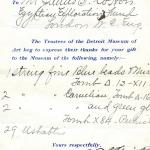 Mr James S. Cotton
Egyptian Exploration Fund
London W.C. Eng
The Trustees of the Detroit Museum of
Art beg to express their thanks for your gift
to the Museum of the following, namely:—
1 string fine blue beads & Mus
Tomb D. 13-XII
2 " Carnelian Tomb A-
2 " " and green
Tomb X84.
29 Ushabti
Yours respectfully,